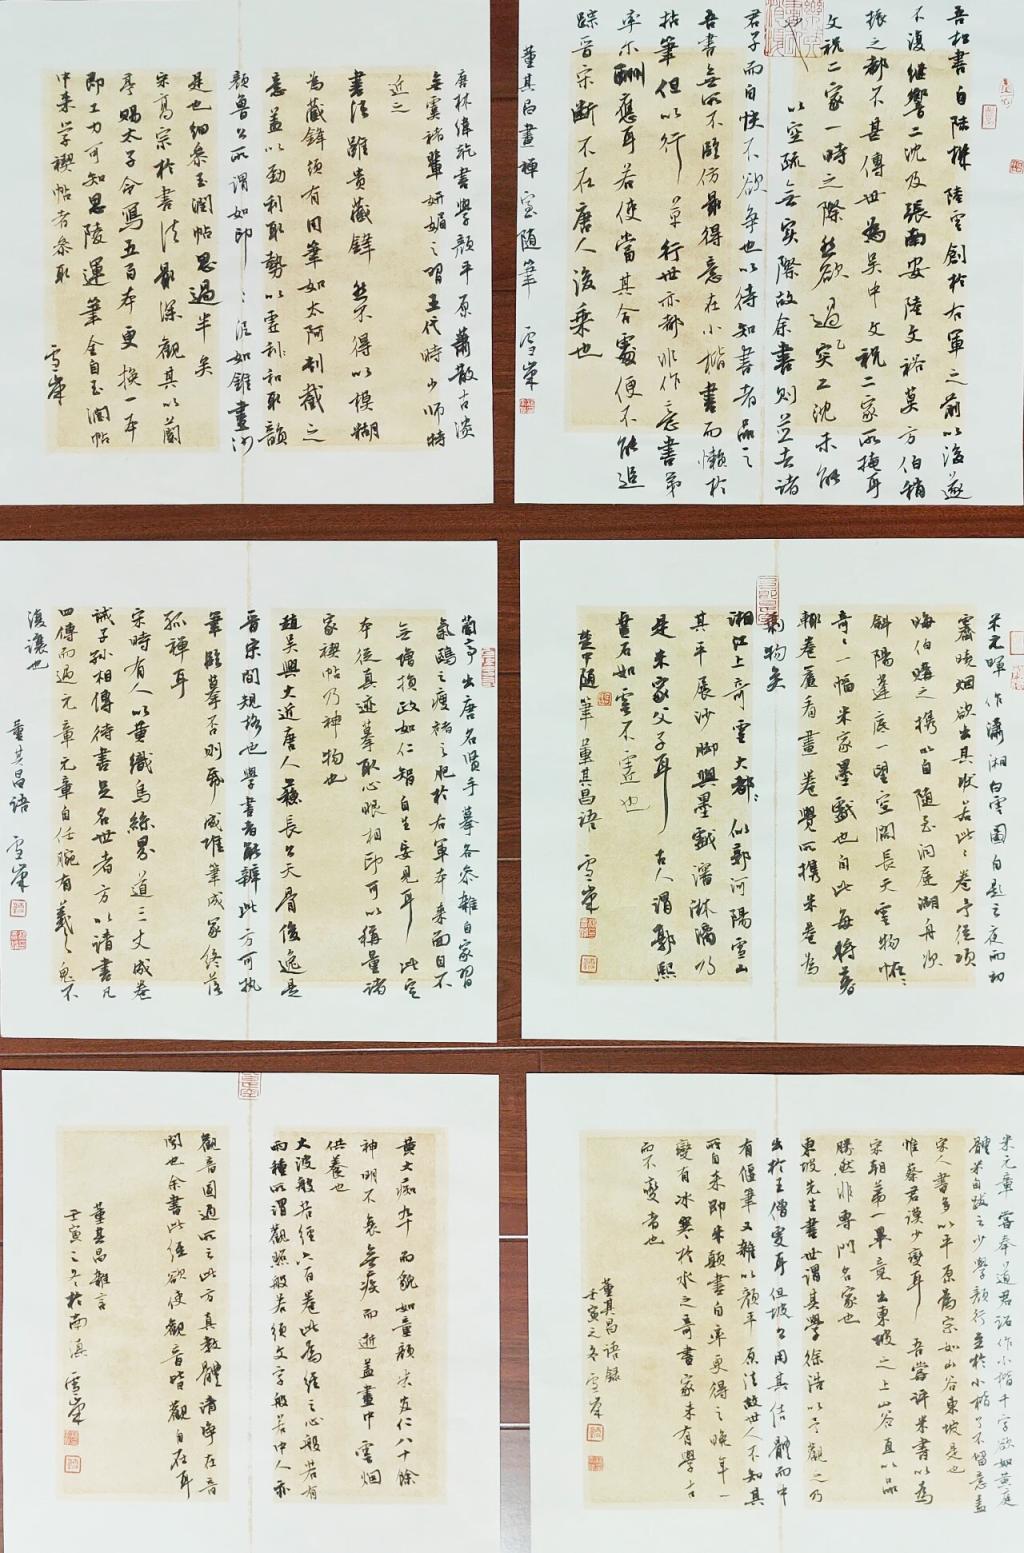 吾松書自陸機陸雲創於右軍之前以後遂
不復繼響二沈及張南安陸文裕莫方伯稍
振之都不甚傳世為吳中文祝二家所掩耳
文祝二家一時之際然欲過二沈未能
以空疏無實際故余書則並去諸
君子而自快不欲爭也以待知書者品之
吾書無所不臨仿最得意在小楷書而懶於
拈筆但以行草行世亦都非作意書第
率尒酬應耳若使當其合處便不能追
踪晉宋斷不在唐人後乘也
董其昌畫禪室隨筆 雪峯
唐林緯乾書學顏平原蕭散古淡
無虞褚輩妍媚之習五代時少師特
近之
書法雖貴藏鋒然不得以模糊
為藏鋒須有用筆如太阿剸截之
意蓋以勁利取勢以虛和取韻
顏魯公所謂如印印泥如錐畫沙
是也細參玉潤帖思過半矣
宋高宗於書法最深觀其以蘭
亭賜太子令寫五百本更換一本
即工力可知思陵運筆全自玉潤帖
中来學禊帖者參取
雪峯
米元暉作瀟湘白雲圖自題之夜雨初
霽曉烟欲出其狀若此此卷予從項
晦伯購之携以自隨至洞庭湖舟次
斜陽蓬底一望空闊長天雲物怪怪
奇奇一幅米家墨戲也自此每將暮
輒卷簾看畫卷覺所携米卷為
剩物矣
湘江上奇雲大都似郭河陽雪山
其平展沙脚與墨瀋淋漓乃
是米家父子耳古人謂郭熙
畫石如雲不虛也
董其昌語 雪峯
蘭亭出唐名賢手摹各參雜自家習
氣歐之瘦褚之肥於右軍本来面目不
無增損政如仁智自生妄見耳此定
本從真迹摹取心眼相印可以稱量諸
家禊帖乃神物也
趙吳興大近唐人蘇長公天骨俊逸是
晉宋間規格也學書者能辨此方可執
筆臨摹否則紙成堆筆成冢終落
狐禪耳
宋時有人以黃織烏絲界道三丈成卷
誡子孫相傳待書足名世者方以請書凡
四傳而遇元章元章自任腕有羲之鬼不
復讓也
董其昌語 雪峯
米元章嘗奉道君詔作小楷千字欲如黃庭
體米自跋之少學顏行至於小楷了不留意蓋
宋人書多以平原為宗如山谷東坡是也
惟蔡君謨少變耳吾嘗評米書以為
宋朝第一畢竟出東坡之上山谷直以品
勝然非專門名家也
東坡先生書世謂其學徐浩以予觀之乃
出於王僧虔耳但坡公用其結體而中
有偃筆又雜以顏平原法故世人不知其
所自来即米顛書自率更得之晚年一
變有冰寒於水之奇書家未有學古
而不變者也
董其昌語錄
壬寅之冬雪峯
黃大癡九十而貌如童顏米友仁八十餘
神明不衰無疾而逝蓋畫中雲烟
供養也
大波般若經六百卷此為經之心般若有
兩種所謂觀照般若須文字般若中人亦
觀音圓通所云此方真教體清淨在音
聞也余書此經欲使觀音皆觀自在耳
董其昌雜言
壬寅之冬於南滇雪峯